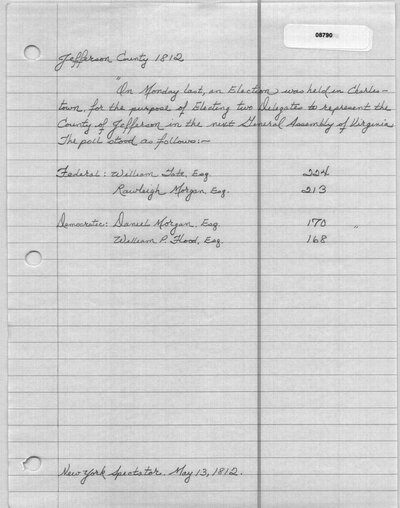 08790
Jefferson County 1812
"On Monday last, an Election was held in Charles-
town, for the purpose of Electing two Delegates to represent the
County of Jefferson in the next General Assembly of Virginia
The poll stood as follows:—
Federal: William Tate, Esq. 224
Rawleigh Morgan, Esq. 213
Democratic: Daniel Morgan, Esq. 170 "
William P. Flood, Esq. 168
New York Spectator. May 13, 1812.